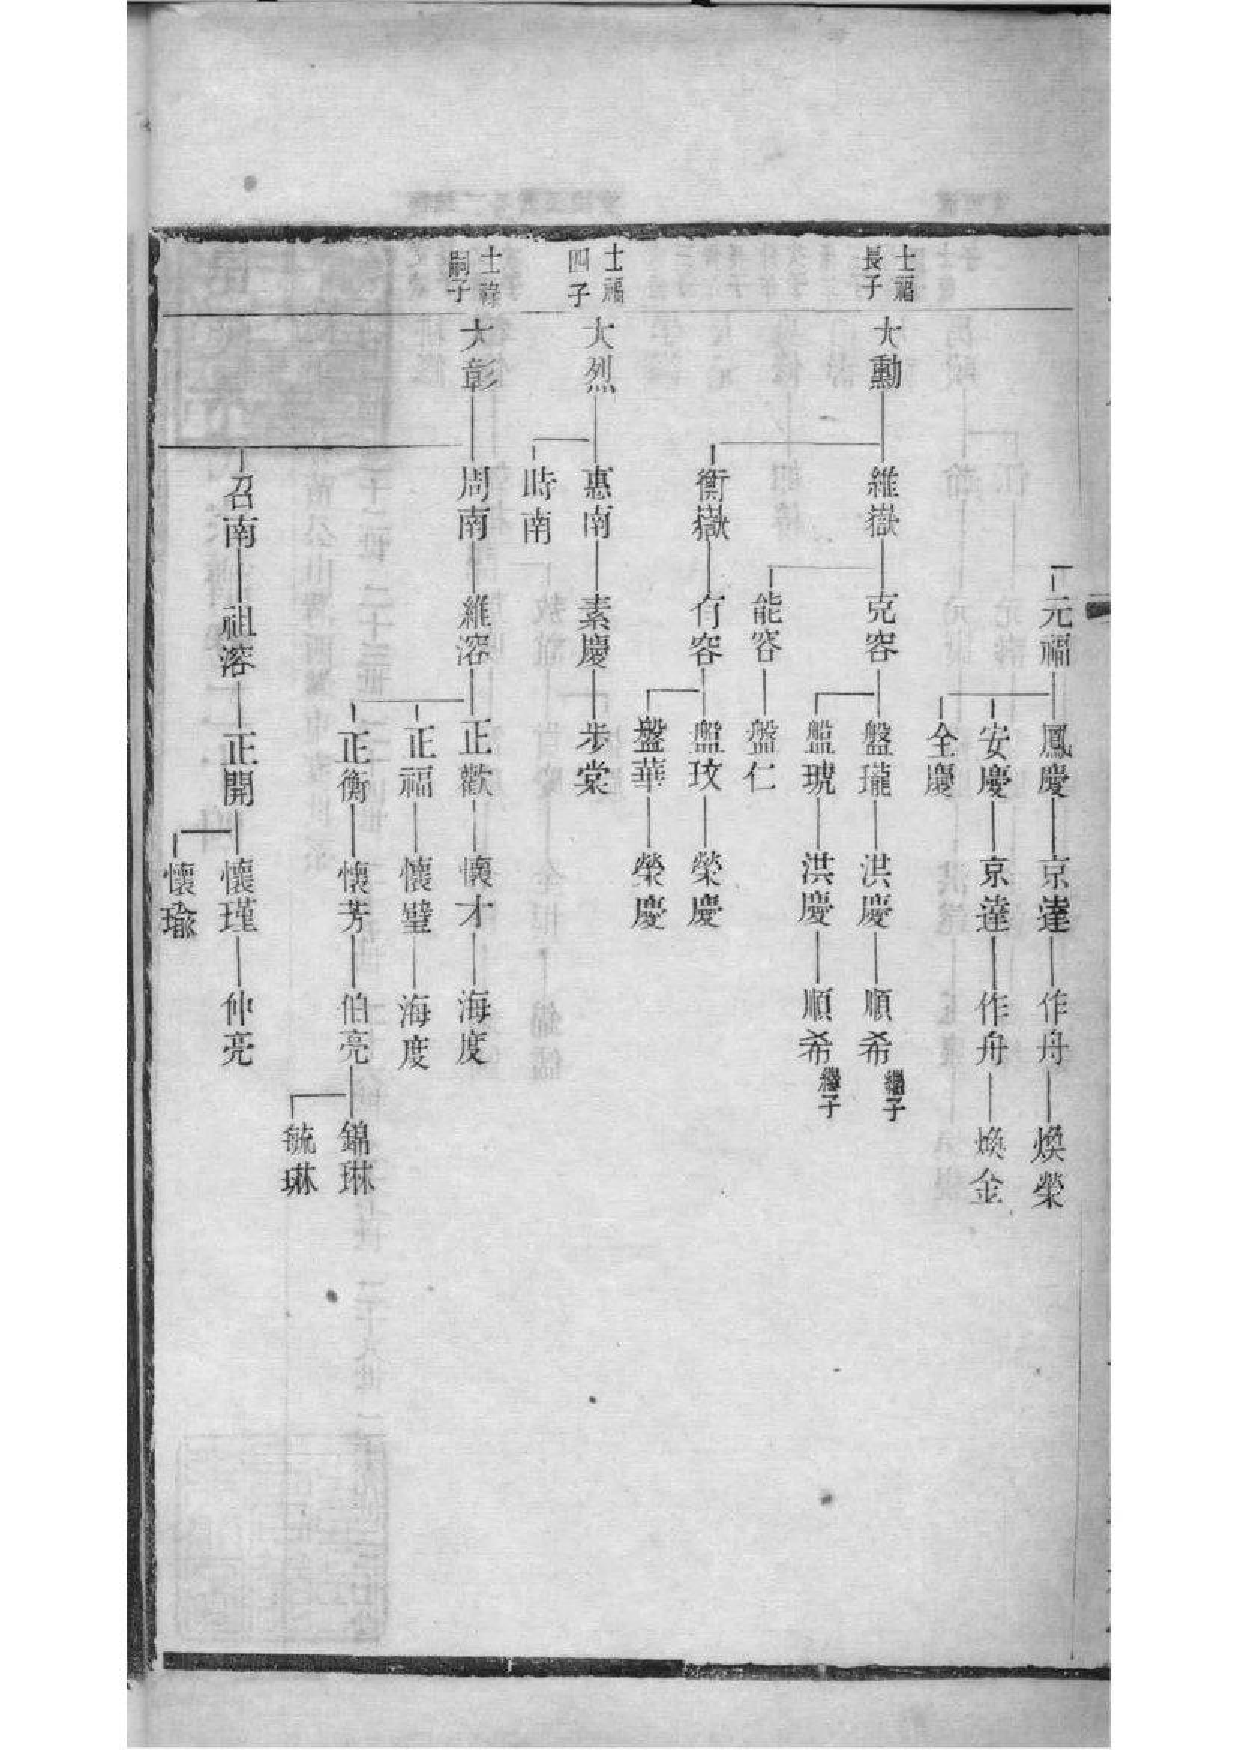 元福
鳳慶
京達
作舟
煥榮
安慶
京達
作舟
煥金
全慶
士福
長子
大勳
維嶽
克容
盤瓏
洪慶
順希
繼子
盤琥
洪慶
順希
繼子
能容
盤仁
衡嶽
有容
盤玟
榮慶
盤華
榮慶
士福
四子
大烈
惠南
素慶
步棠
時南
士祿
嗣子
大彰
周南
維溶
正歡
懷才
海度
正福
懷璧
海度
正衡
懷芳
伯亮
錦琳
毓琳
召南
祖溶
正開
懷瑾
仲亮
懷瑜